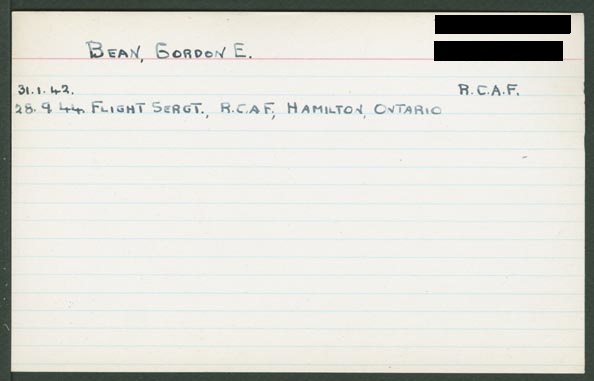 BEAN, GORDON E.
31.1.42. R.C.A.F.
28.9.44. FLIGHT SERGT., R.C.A.F., HAMILTON, ONTARIO